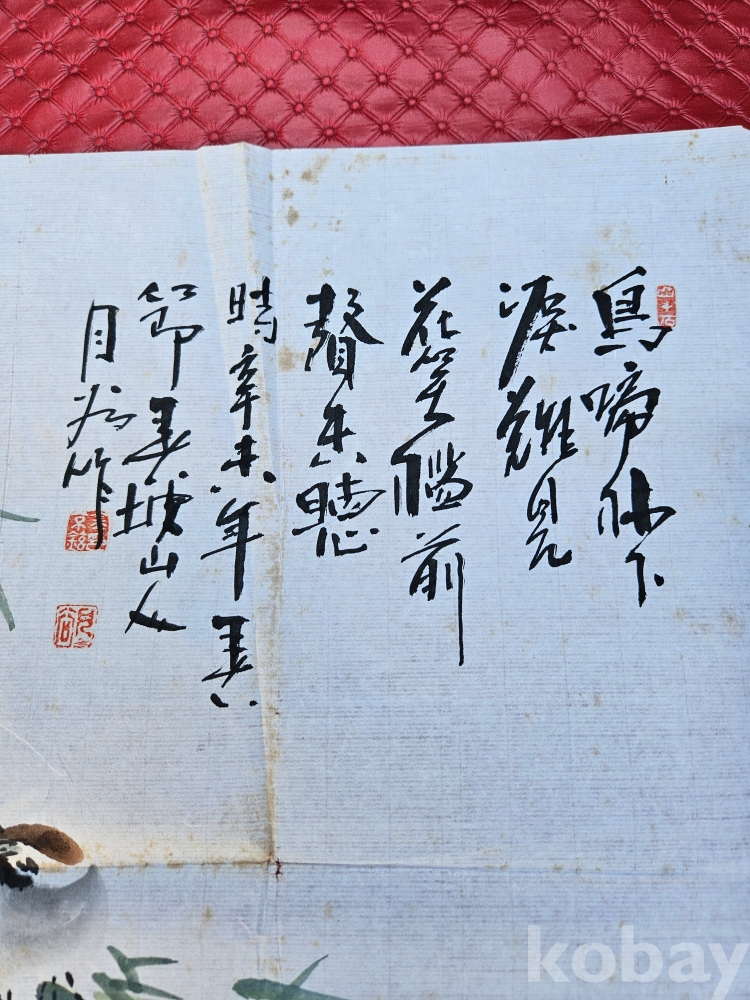 鳥啼林下
淚難見
花笑檻前
聲未聽
時辛未年
節坡山人
月作
kobay